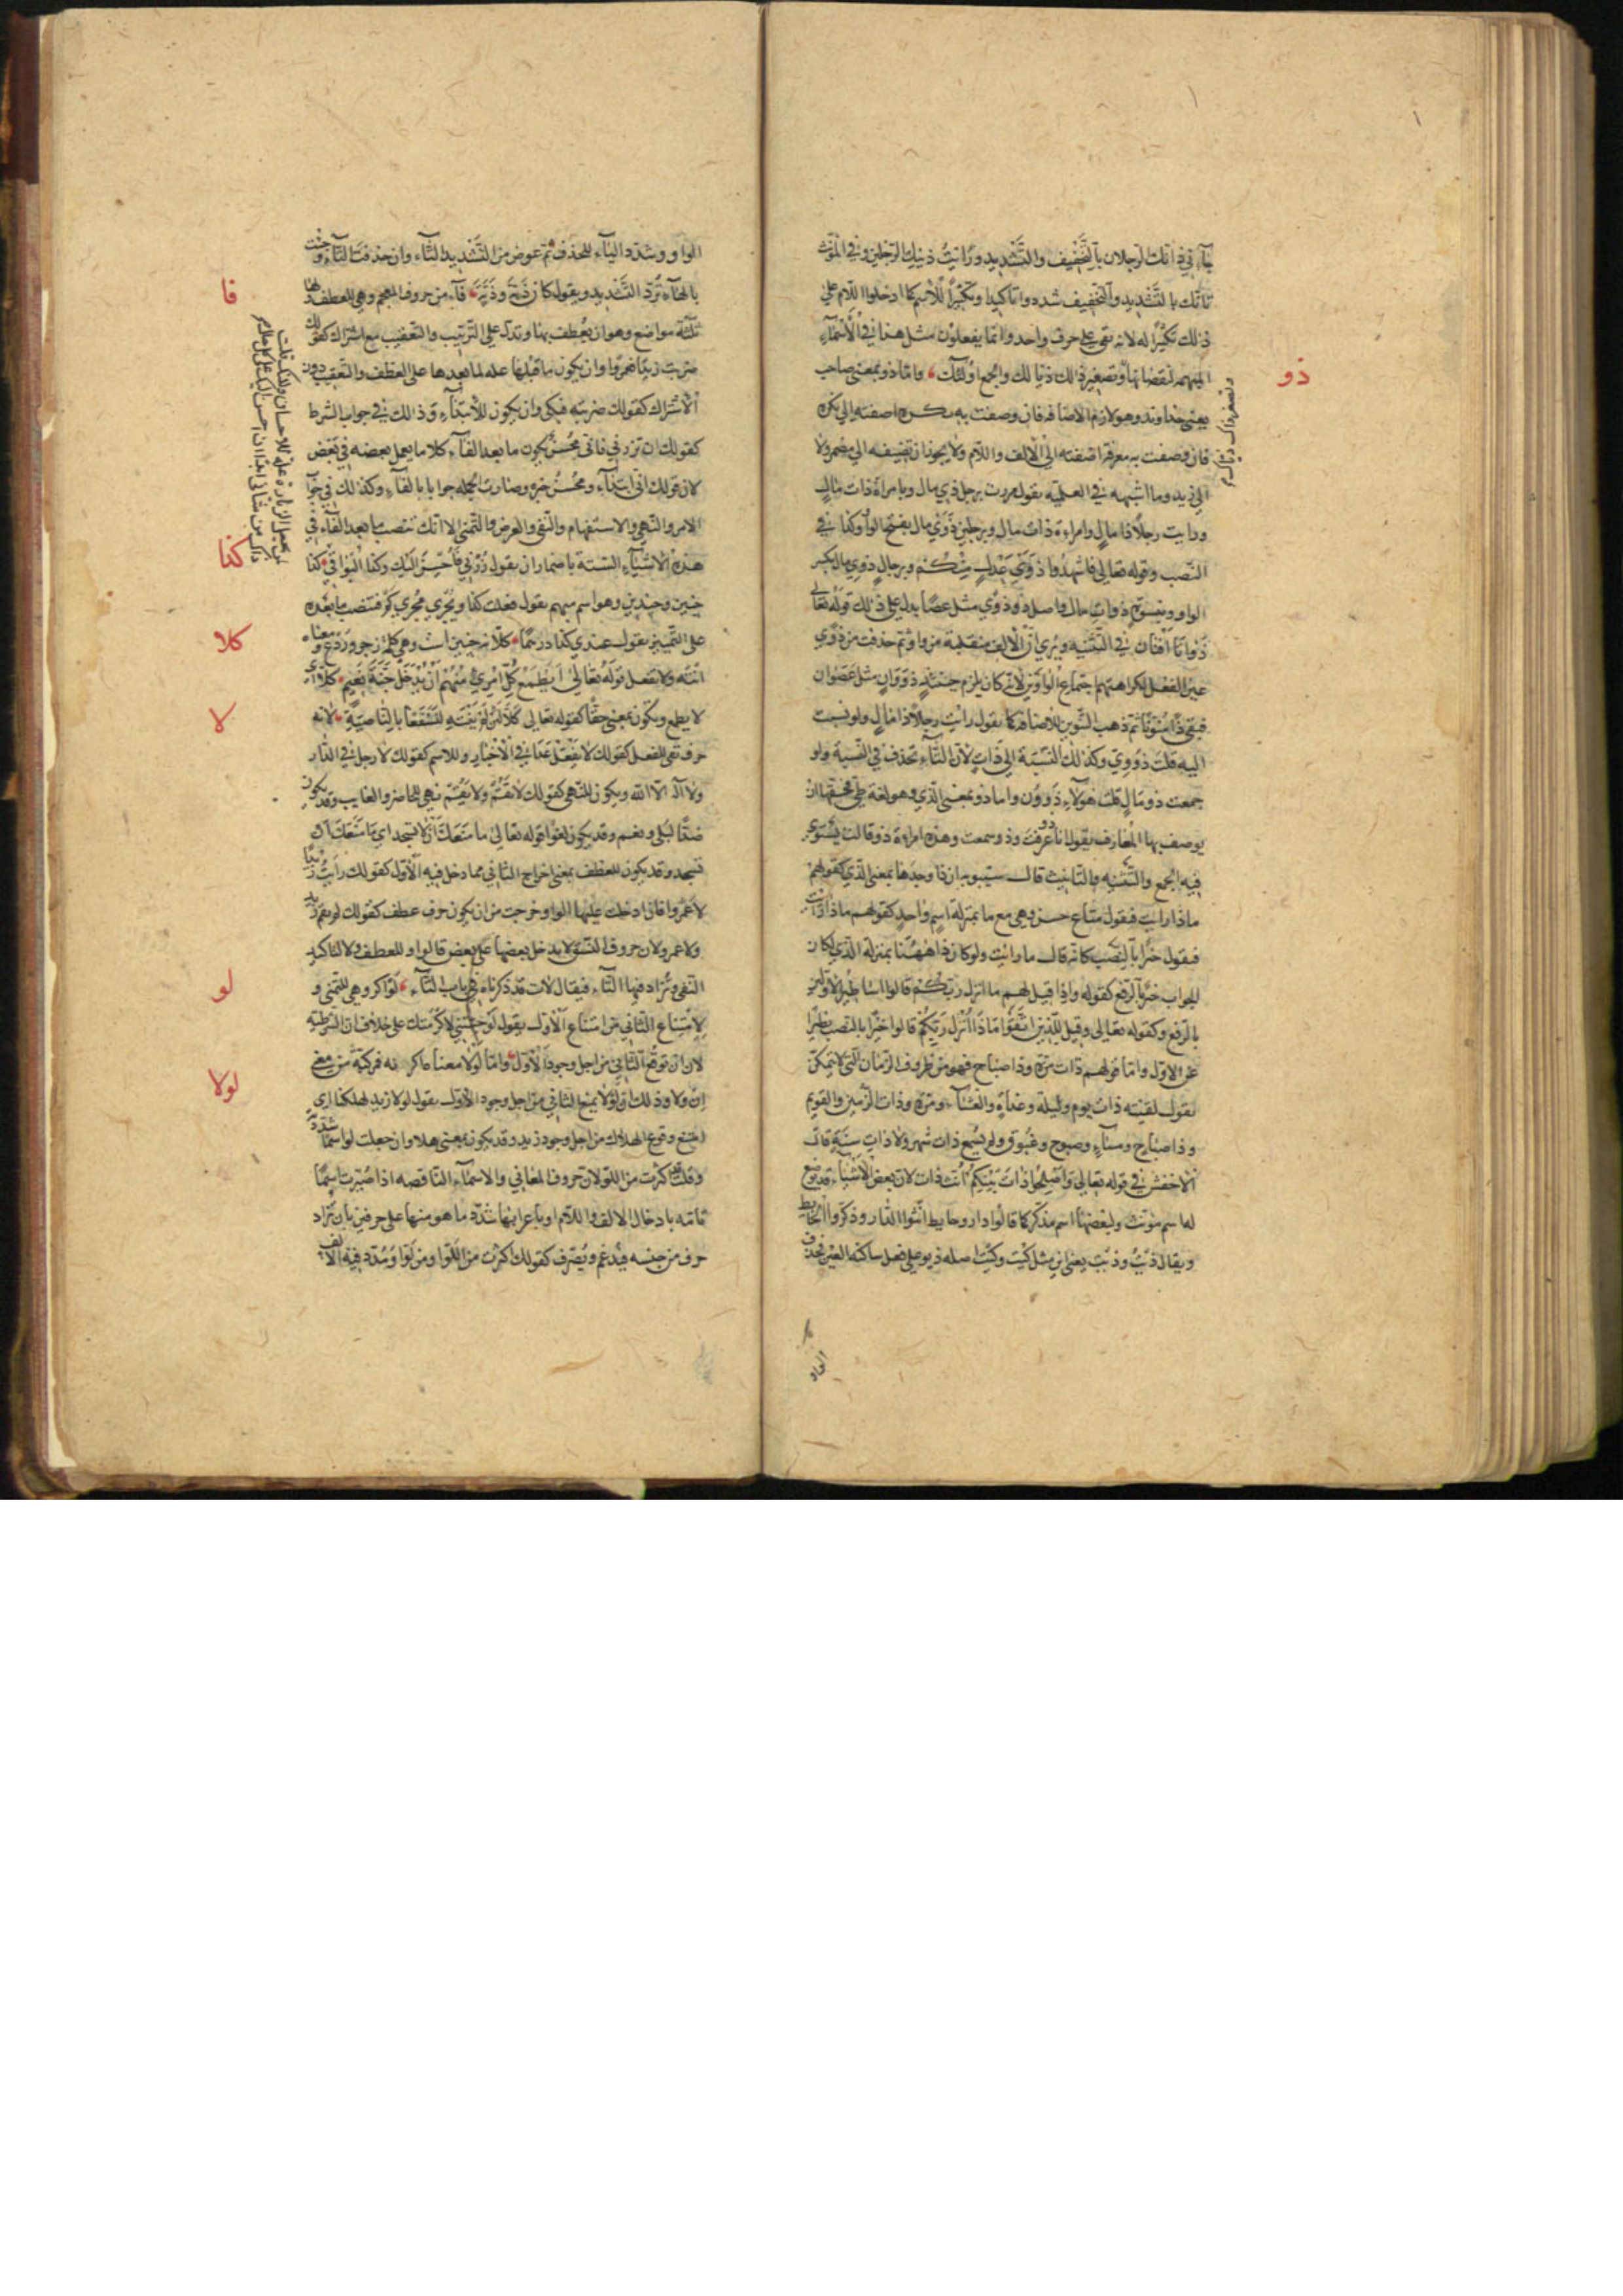 جاءني ذانك الرجلان بالتخفيف والتشديد ورايت ذينك الرجلين وفي المؤنث
تانك بالتشديد والتخفيف شددوا تاكيدا وتكثيرا للاسم كما ادخلوا اللام على
ذلك تكثيرا له لانه بقي على حرف واحد وانما يفعلون مثل هذا في الاسماء
المبهمة لنقصانها وتصغير ذلك ذيالك والجمع اولئك واما ذو بمعنى صاحب
ذو
يعني خداوند وهو لازم الاضافة فان وصفت به نكرة اضفته الى نكرة
فان وصفت به معرفة اضفته الى الالف واللام ولا يجوز ان تضيفه الى مضمر ولا
الى زيد وما اشبهه في العلمية يقول مررت برجل ذي مال وبامراة ذات مال
ورايت رجلا ذا مال وامراءة ذات مال وبرجلين ذوي مال بفتح الواو وكذا في
النصب وقوله تعالى فاشهدوا ذوي عدل منكم وبرجال ذوي مال بكسر
الواو وبنسوة ذوات مال واصل ذو ذوي مثل عصا يدل على ذلك قوله تعالى
ذواتا افنان في التثنية ويرى ان الالف منقلبة من واو ثم حذفت من ذوي
عين الفعل لكراهتهم اجتماع الواوين لانه كان يلزم حينئذ ذووان مثل عصوان
فبقي ذا منونا ثم ذهب التنوين للاضافة كما يقول رايت رجلا ذا مال ولو نسبت
اليه قلت ذووي وكذلك النسبة الى ذات لان التاء تحذف في النسبة ولو
جمعت ذو مال قلت هولاء ذوون واما ذو بمعنى الذي وهو لغة طي فحقها ان
يوصف بها المعارف يقول انا ذو عرفت وذو سمعت وهذه امراءة ذو قالت يستوي
فيه الجمع والتثنية والتانيث قال سيبويه ان ذا وحدها بمعنى الذي كقولهم
ماذا رايت فيقول متاع حسن وهي مع ما بمنزلة اسم واحد كقولهم ماذا رايت
فيقول خيرا بالنصب كانه قال ما رايت ولو كان ذا ههنا بمنزلة الذي لكان
الجواب خير بالرفع كقوله واذا قيل لهم ما انزل ربكم قالوا اساطير الاولين
بالرفع وكقوله تعالى وقيل للذين اتقوا ماذا انزل ربكم قالوا خيرا بالنصب
عن الاول واما قولهم ذات مرة وذا صباح فهو من ظروف الزمان التي لا يتمكن
يقول لقيته ذات يوم وليلة وغداة والعشاء ومرة وذات الزمين والعويم
وذا صباح ومساء وصبوح وغبوق ولم يسمع ذات شهر ولا ذات سنة قال
الاخفش في قوله تعالى واصلحوا ذات بينكم انث ذات لان بعض الاشياء قد يوضع
له اسم مونث ولبعضها اسم مذكر كما قالوا دار وحايط انثوا الدار وذكروا الحايط
ويقال ذيت وذيت يعني مثل كيت وكيت اصله ذيو على فعل ساكنة العين فحذف
الواو
الواو وشدد الياء للحذف ثم عوض من التشديد التاء وان حذفت التاء وجئت
بالهاء ترد التشديد ويقول كان ذية وذية فاء من حروف المعجم وهي للعطف ولها
فا
ثلثة مواضع وهو ان يعطف بها وتدل على الترتيب والتعقيب مع اشراك كقولك
ضربت زيدا فعمروا وان يكون ما قبلها علة لما بعدها على العطف والتعقيب دون
الاشتراك كقولك ضربته فبكى وان يكون للابتداء وذلك في جواب الشرط
كقولك ان تزرني فانت محسن يكون ما بعد الفاء كلاما يعمل بعضه في بعض
لان قولك انت ابتداء ومحسن خبره وصارت الجملة جوابا بالفاء وكذلك في جواب
الامر والنهي والاستفهام والنفي والعرض والتمني الا انك تنصب ما بعد الفاء في
هذه الاشياء الستة باضمار ان يقول زرني فاحسن اليك وكذا البواقي كذا
كذا
چنين وچندين وهو اسم مبهم يقول فعلت كذا ويجري مجرى كم فتنصب ما بعده
على التمييز يقول عندي كذا درهما كلا نه چنين است وهي كلمة زجر وردع ومعناه
كلا
انته ولا تفعل قوله تعالى ايطمع كل امرئ منهم ان يدخل جنة نعيم كلا اي
لا يطمع ويكون بمعنى حقا كقوله تعالى كلا لئن لم ينته لنسفعا بالناصية لا نه
لا
حرف نفي للفعل كقولك لا يفعل غدا في الاخبار وللاسم كقولك لا رجل في الدار
ولا اله الا الله ويكون للنهي كقولك لا تقم ولا يقم نهي للحاضر والغايب وقد يكون
ضدا لبلى ونعم وقد يكون لغوا قوله تعالى ما منعك ان لا تسجد اي ما منعك ان
تسجد وقد يكون للعطف بمعنى اخراج الثاني مما دخل فيه الاول كقولك رايت زيدا
لا عمروا فان ادخلت عليها الواو خرجت من ان يكون حرف عطف كقولك لم يقم زيد
ولا عمرو لان حروف النسق لا يدخل بعضها على بعض فالواو للعطف ولا لتاكيد
النفي وتزاد فيها التاء فيقال لات قد ذكرناه في باب التاء لو اكر وهي للتمني و
لو
لامتناع الثاني من امتناع الاول يقول لو جئتني لاكرمتك على خلاف ان الشرطية
لان ان توقع الثاني من اجل وجود الاول واما لولا معناه اكر نه مركبة من معنى
لولا
ان ولا وذلك ان لولا يمنع الثاني من اجل وجود الاول يقول لولا زيد لهلكنا اي
امتنع وقوع الهلاك من اجل وجود زيد وقد يكون بمعنى هلا وان جعلت لو اسما شددته
وقلت قد اكثرت من اللو لان حروف المعاني والاسماء الناقصة اذا صيرت اسما
تامة بادخال الالف واللام او باعرابها شدد ما هو منها على حرفين بان تزاد
حرف من جنسه فيدغم ويصرف كقولك اكثرت من اللو ومن لو ومدد فيه الالف